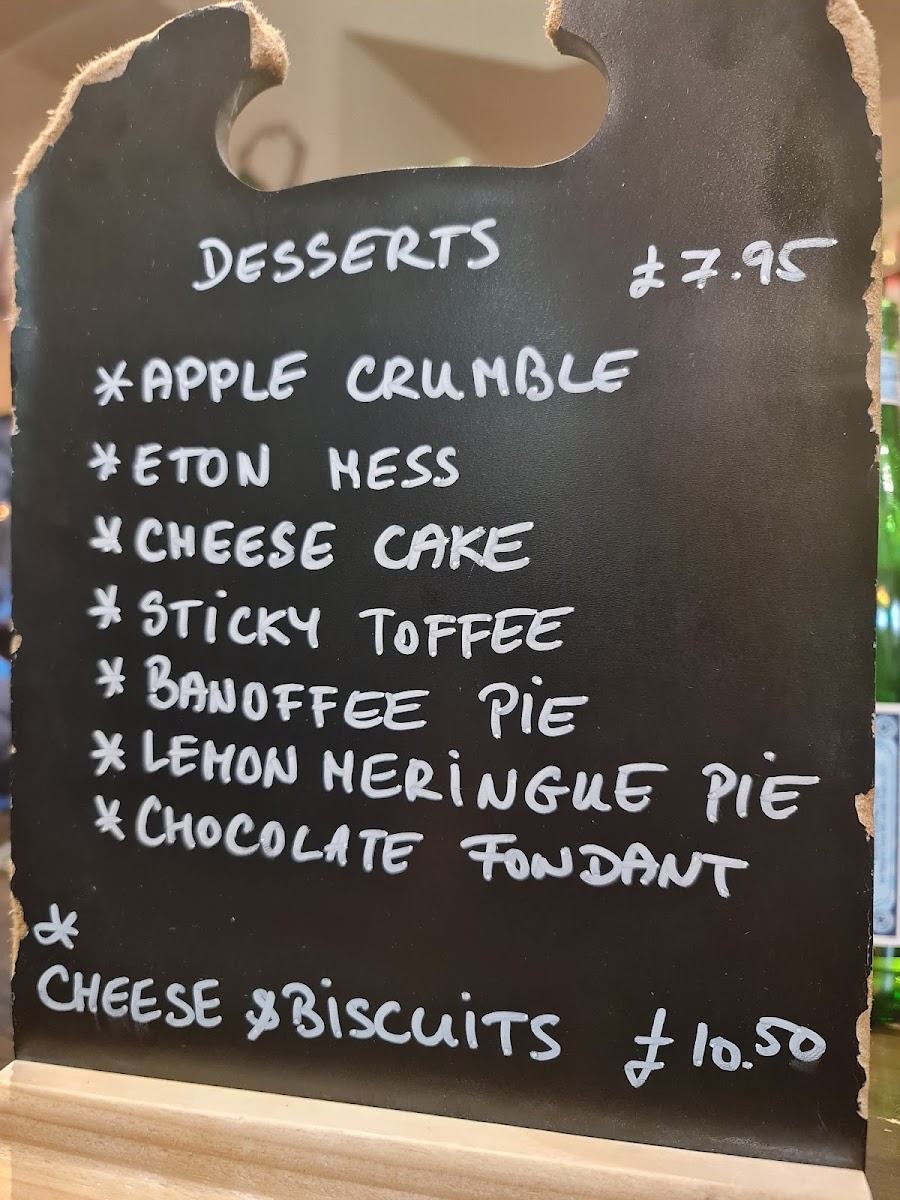 DESSERTS £7.95
*APPLE CRUMBLE
*ETON MESS
*CHEESE CAKE
*STICKY TOFFEE
*BANOFFEE PIE
*LEMON MERINGUE PIE
*CHOCOLATE FONDANT
*
CHEESE &BISCUITS £10.50